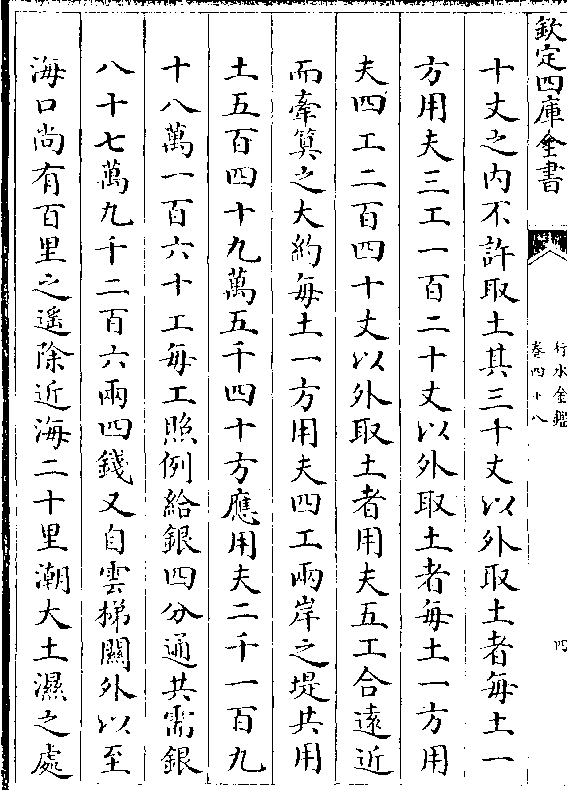 欽定四庫全書
行水金鑑
卷四十八
四
十丈之内不許取土其三十丈以外取土者每土一
方用夫三工一百二十丈以外取土者每土一方用
夫四工二百四十丈以外取土者用夫五工合逺近
而牽算之大約每土一方用夫四工兩岸之堤共用
土五百四十九萬五千四十方應用夫二千一百九
十八萬一百六十工每工照例給銀四分通共需銀
八十七萬九千二百六兩四錢又自雲梯關外以至
海口尚有百里之遥除近海二十里潮大土濕之處